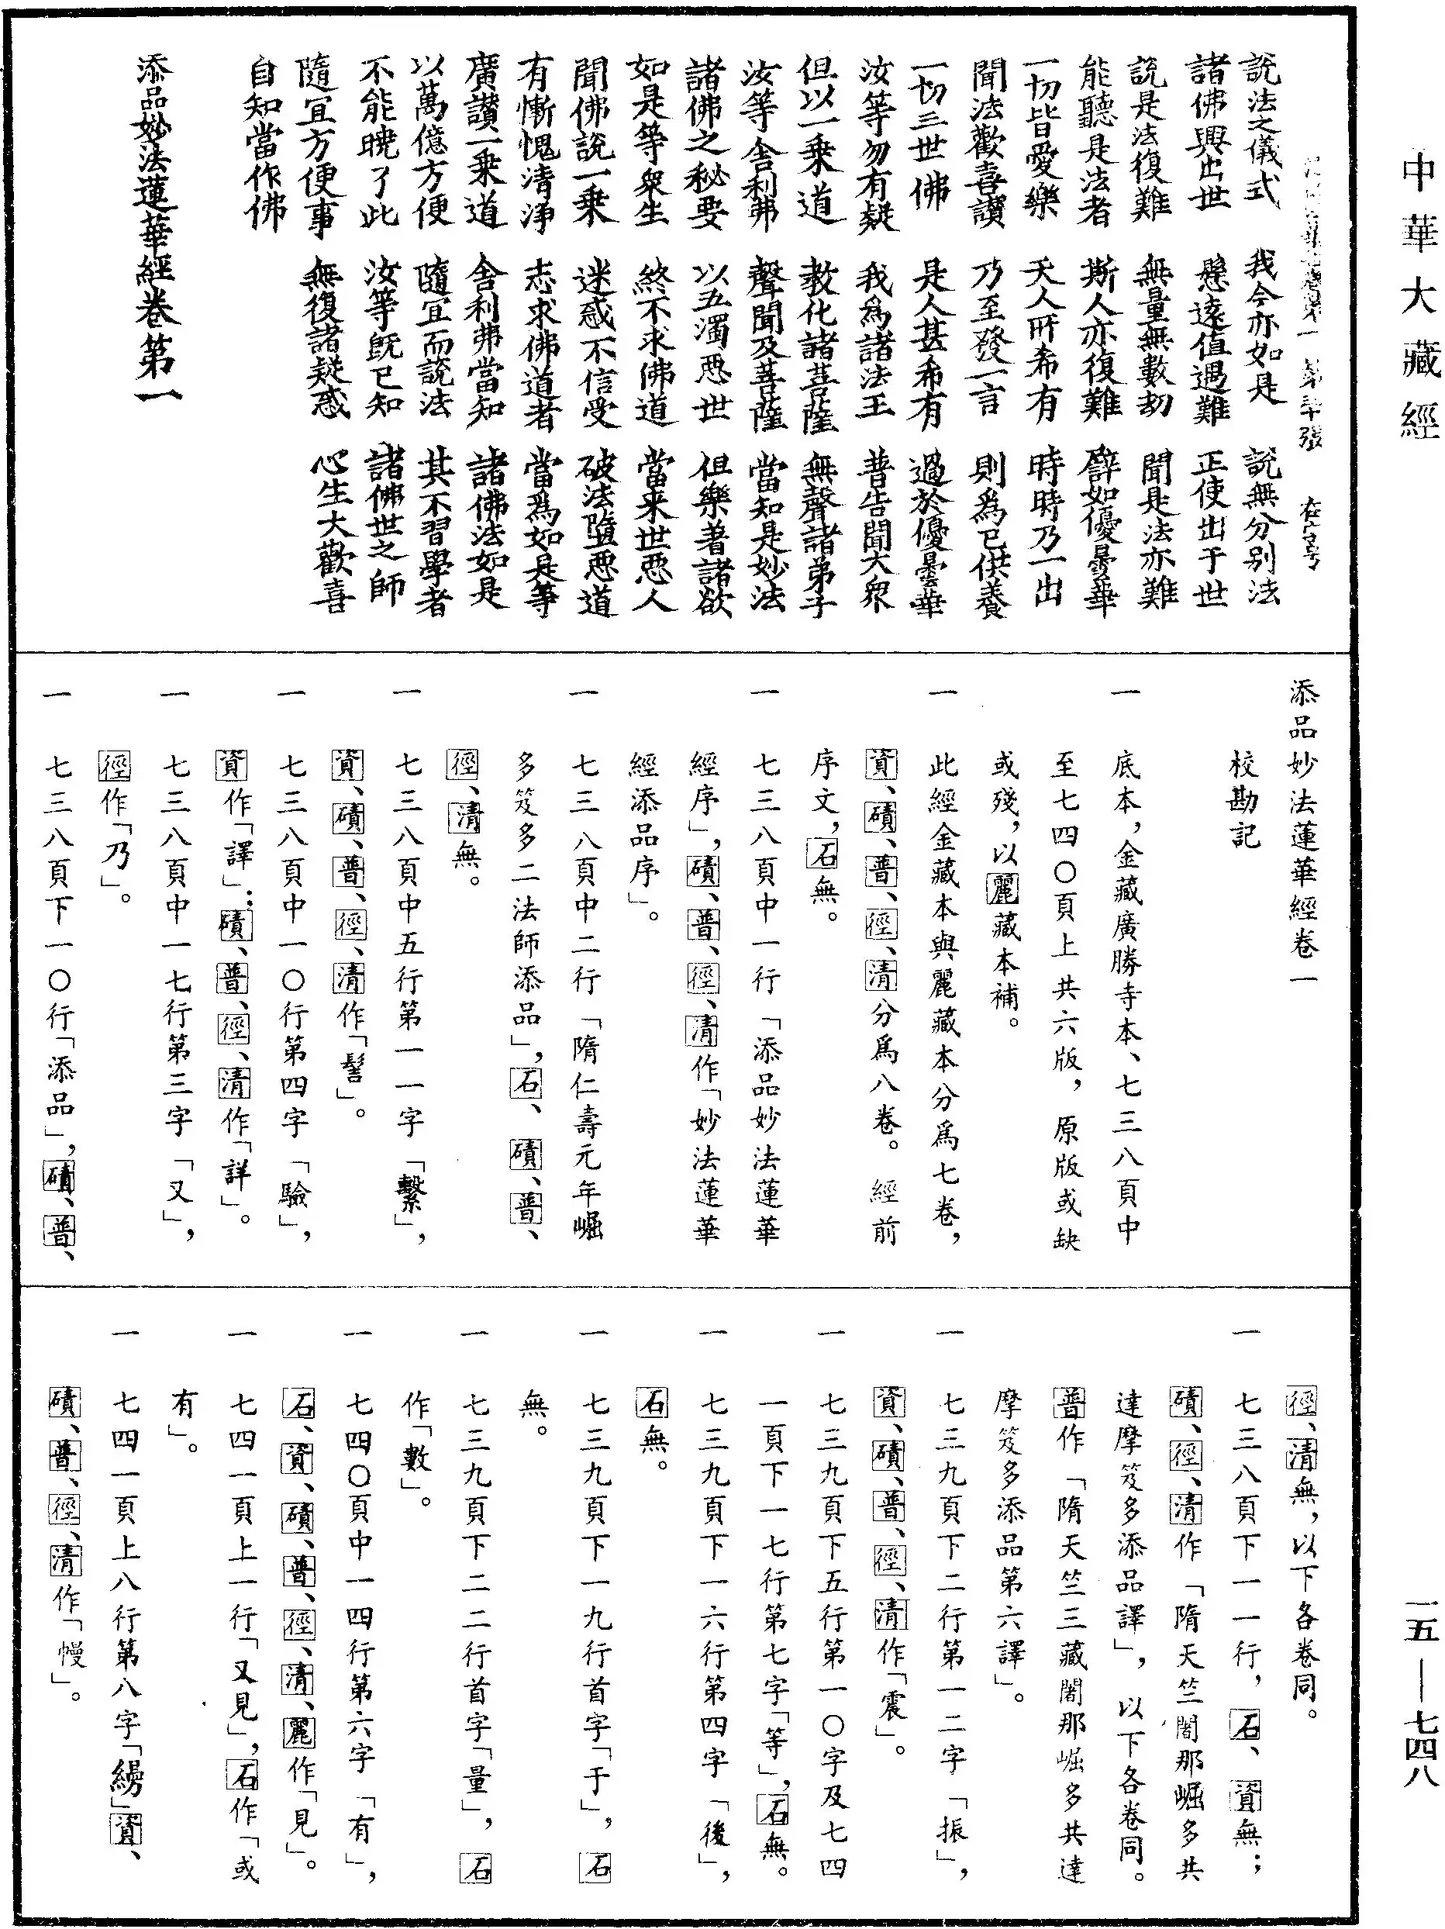 中華大藏經
一五—七四八
說法之儀式　我今亦如是　說無分别法
諸佛興出世　懸遠值遇難　正使出于世
說是法復難　無量無數劫　聞是法亦難
能聽是法者　斯人亦復難　譬如優曇華
一切皆愛樂　天人所希有　時時乃一出
聞法歡喜讚　乃至發一言　則爲已供養
一切三世佛　是人甚希有　過於優曇華
汝等勿有疑　我爲諸法王　普告聞大衆
但以一乘道　教化諸菩薩　無聲諸弟子
汝等舍利弗　聲聞及菩薩　當知是妙法
諸佛之秘要　以五濁惡世　但樂著諸欲
如是等衆生　終不求佛道　當来世惡人
聞佛說一乘　迷惑不信受　破法墮惡道
有慚愧清淨　志求佛道者　當爲如是等
廣讚一乘道　舍利弗當知　諸佛法如是
以萬億方便　隨宜而說法　其不習學者
不能曉了此　汝等旣已知　諸佛世之師
隨宜方便事　無復諸疑惑　心生大歡喜
自知當作佛
添品妙法蓮華經卷第一
添品妙法蓮華經卷一
校勘記
一　底本，金藏廣勝寺本、七三八頁中
至七四〇頁上共六版，原版或缺
或殘，以麗藏本補。
一　此經金藏本與麗藏本分爲七卷，
資、磧、普、徑、清分爲八卷。經前
序文，石無。
一　七三八頁中一行「添品妙法蓮華
經序」，磧、普、徑、清作「妙法蓮華
經添品序」。
一　七三八頁中二行「隋仁壽元年崛
多笈多二法師添品」，石、磧、普、
徑、清無。
一　七三八頁中五行第一一字「繫」，
資、磧、普、徑、清作「髻」。
一　七三八頁中一〇行第四字「驗」，
資作「譯」；磧、普、徑、清作「詳」。
一　七三八頁中一七行第三字「又」，
徑作「乃」。
一　七三八頁下一〇行「添品」，磧、普、
徑、清無，以下各卷同。
一　七三八頁下一一行，石、資無；
磧、徑、清作「隋天竺闍那崛多共
達摩笈多添品譯」，以下各卷同。
普作「隋天竺三藏闍那崛多共達
摩笈多添品第六譯」。
一　七三九頁下二行第一二字「振」，
資、磧、普、徑、清作「震」。
一　七三九頁下五行第一〇字及七四
一頁下一七行第七字「等」，石無。
一　七三九頁下一六行第四字「後」，
石無。
一　七三九頁下一九行首字「于」，石
無。
一　七三九頁下二二行首字「量」，石
作「數」。
一　七四〇頁中一四行第六字「有」，
石、資、磧、普、徑、清、麗作「見」。
一　七四一頁上一行「又見」，石作「或
有」。
一　七四一頁上八行第八字「縵」資、
磧、普、徑、清作「幔」。